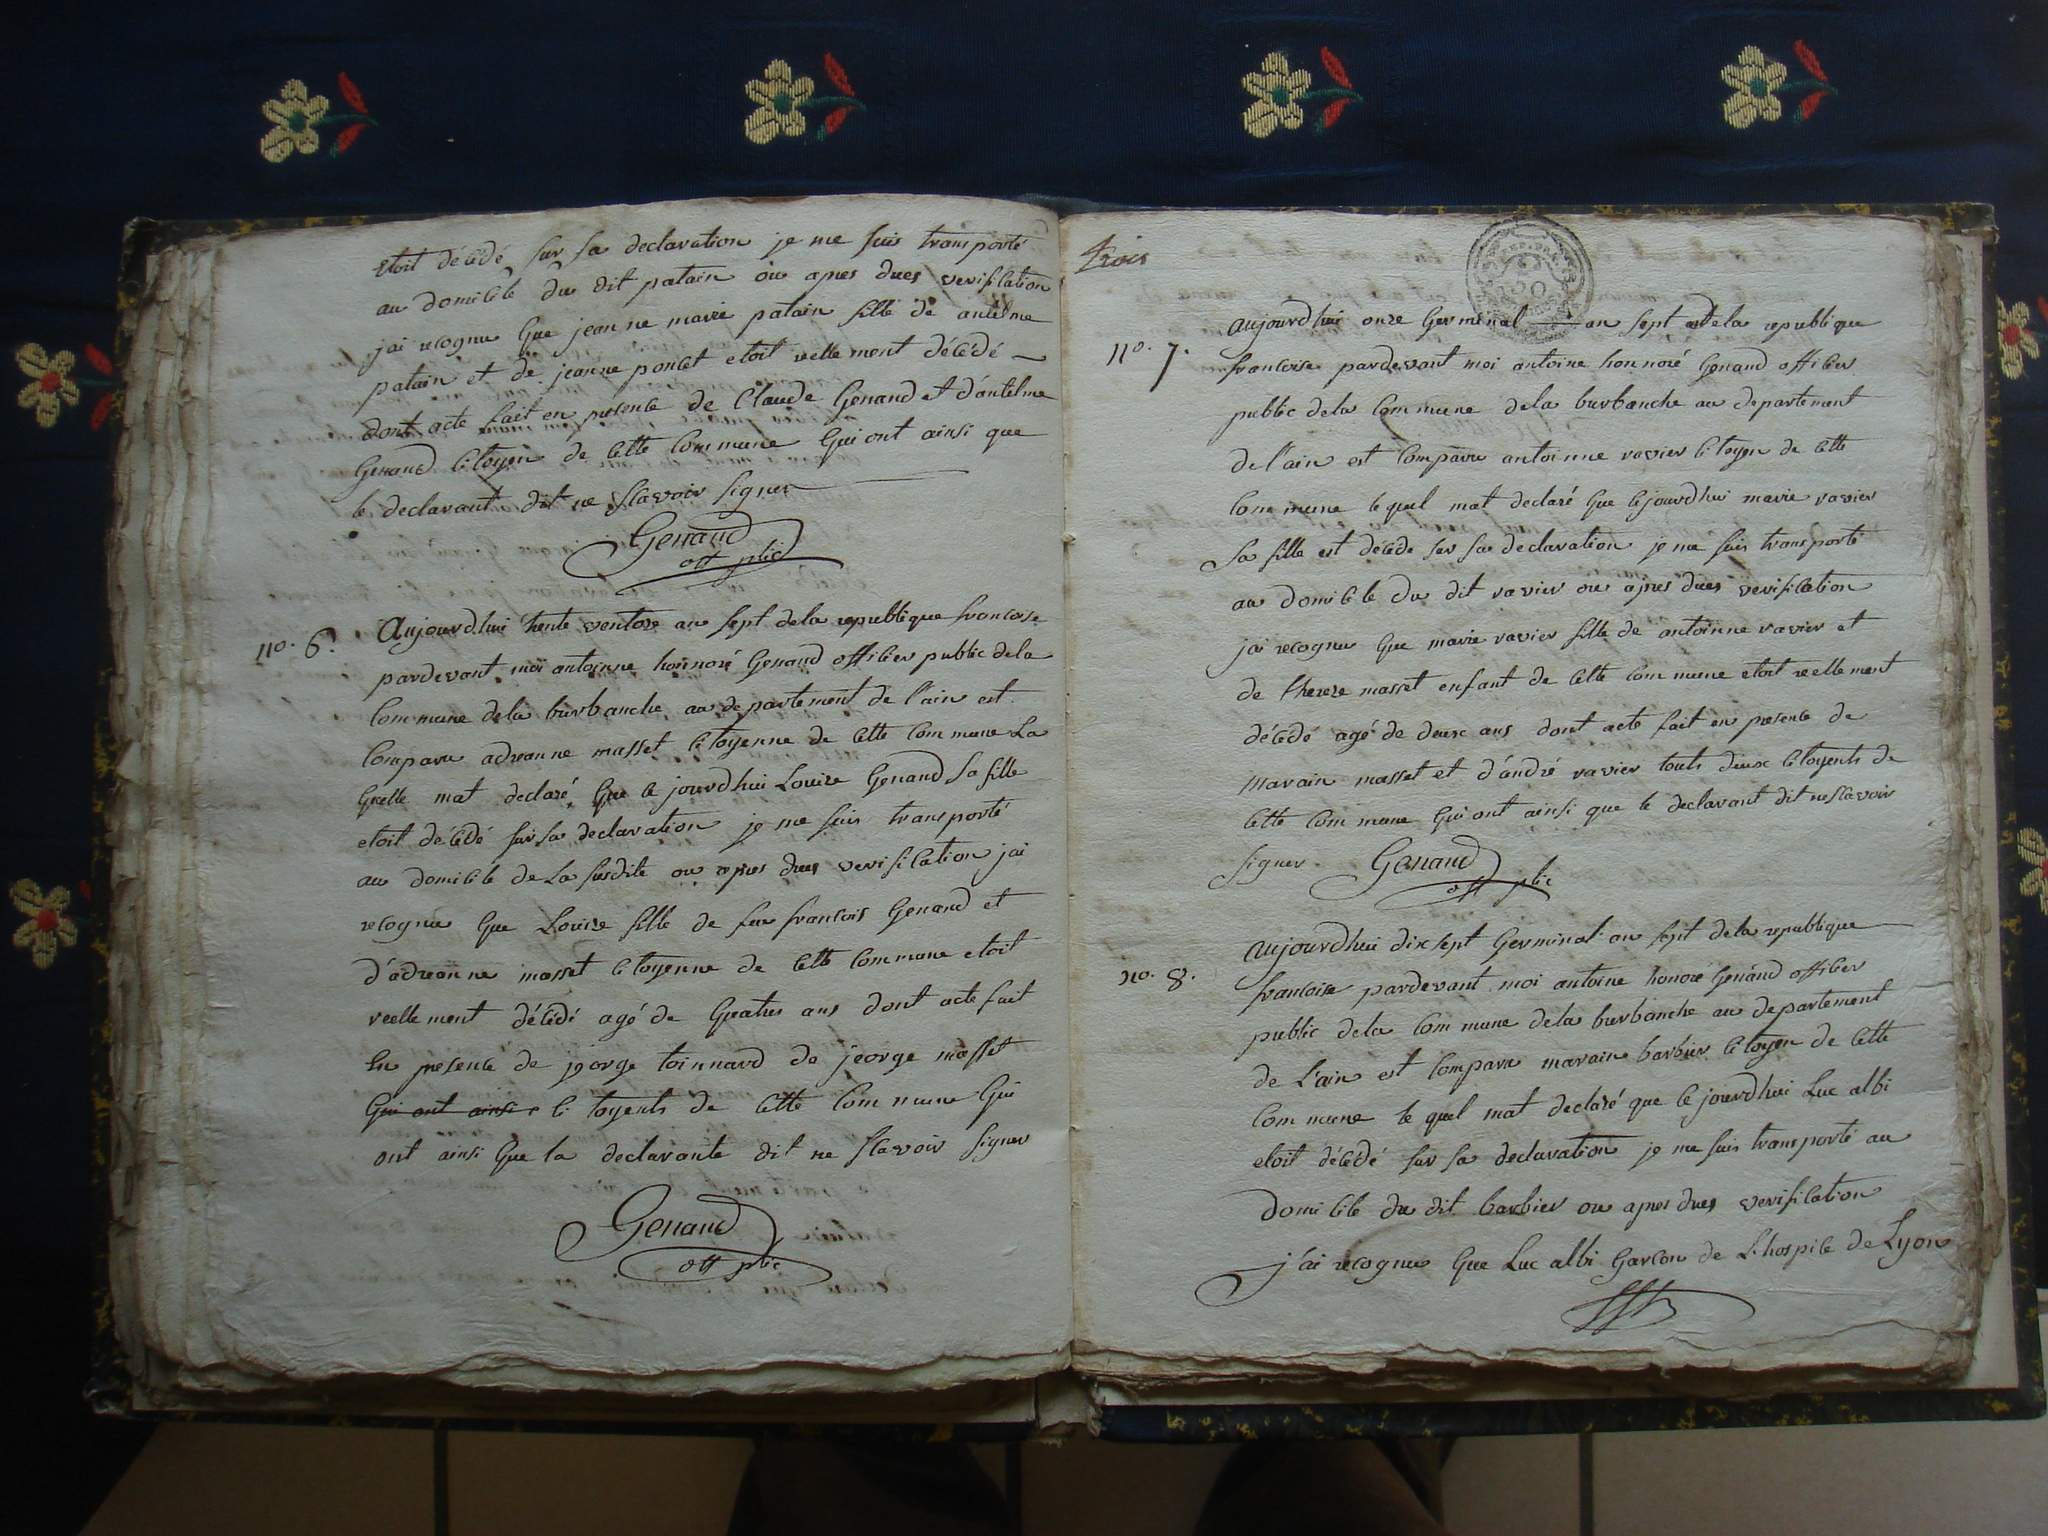 etoit décédé sur sa declaration je me suis transporté
au domicile du dit patain ou apres dues verification
jai recognu que jeanne marie patain fille de antelme
patain et de jeanne poncet etoit réellement décédé
dont acte fait en presence de Claude Genand et d'antelme
Genand citoyen de cette commune qui ont ainsi que
le declarant dit ne scavoir signer
Genand
off plic
no. 6. Aujourdhui trente ventose an sept dela republique francoise
pardevant moi antoinne honnoré Genand officier public dela
commune dela burbanche au departement de l'ain est
comparu adreanne masset citoyenne de cette commune La
quelle mat declaré que ce jourdhui Louize Genand sa fille
etoit décédé sur sa declaration je me suis transporté
au domicile de La susdite ou apres dues verification jai
recognu que Louize fille de feu francois Genand et
d'adreanne masset citoyenne de cette commune etoit
reellement décédé agé de quatres ans dont acte fait
en presence de jeorge toinnard de jeorge masset
qui ont ainsi citoyents de cette commune qui
ont ainsi que la declarante dit ne scavoir signer
Genand
off plic
trois
no. 7. aujourdhui onze Germinal an sept dela republique
francoise pardevant moi antoine honnoré Genand officier
public dela commune dela burbanche au departement
de l'ain est comparu antoinne ravier citoyen de cette
commune le quel mat declaré que cejourdhui marie ravier
sa fille est décédé sur sa declaration je me suis transporté
au domicile du dit ravier ou apres dues verification
jai recognu que marie ravier fille de antoinne ravier et
de thereze masset enfant de cette commune etoit reellement
décédé agé de deux ans dont acte fait en presence de
marain masset et d'andré ravier touts deux citoyents de
cette commune qui ont ainsi que le declarant dit ne scavoir
signer Genand
off plic
no. 8. aujourdhui dix sept Germinal an sept dela republique
francoise pardevant moi antoine honoré Genand officier
public dela commune dela burbanche au departement
de L'ain est comparu marain barbier citoyen de cette
commune le quel mat declaré que ce jourdhui Luc albi
etoit décédé sur sa declaration je me suis transporté au
domicile du dit barbier ou apres dues verification
j'ai recognu que Luc albi garcon de L'hospice de Lyon